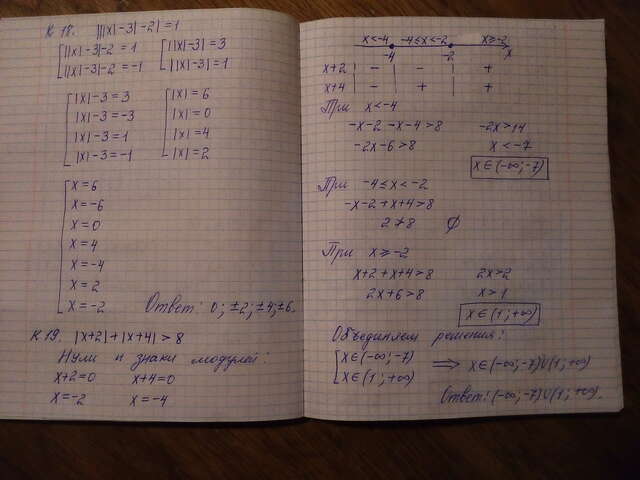 К 18. |||x|-3|-2|=1
[||x|-3|-2=1 [||x|-3|=3
[||x|-3|-2=-1 [||x|-3|=1
[|x|-3=3 [|x|=6
|x|-3=-3 |x|=0
|x|-3=1 |x|=4
|x|-3=-1 |x|=2
[x=6
x=-6
x=0
x=4
x=-4
x=2
x=-2 Ответ: 0; ±2; ±4; ±6.
К 19. |x+2|+|x+4|>8
Нули и знаки модулей:
x+2=0 x+4=0
x=-2 x=-4
x<-4 -4≤x<-2 x≥-2
-4 -2 x
x+2 | - | - | +
x+4 | - | + | +
При x<-4
-x-2-x-4>8 -2x>14
-2x-6>8 x<-7
x∈(-∞;-7)
При -4≤x<-2
-x-2+x+4>8
2≯8 ∅
При x≥-2
x+2+x+4>8 2x>2
2x+6>8 x>1
x∈(1;+∞)
Объединяем решения:
[x∈(-∞;-7)
[x∈(1;+∞) ⟹ x∈(-∞;-7)∪(1;+∞)
Ответ: (-∞;-7)∪(1;+∞).